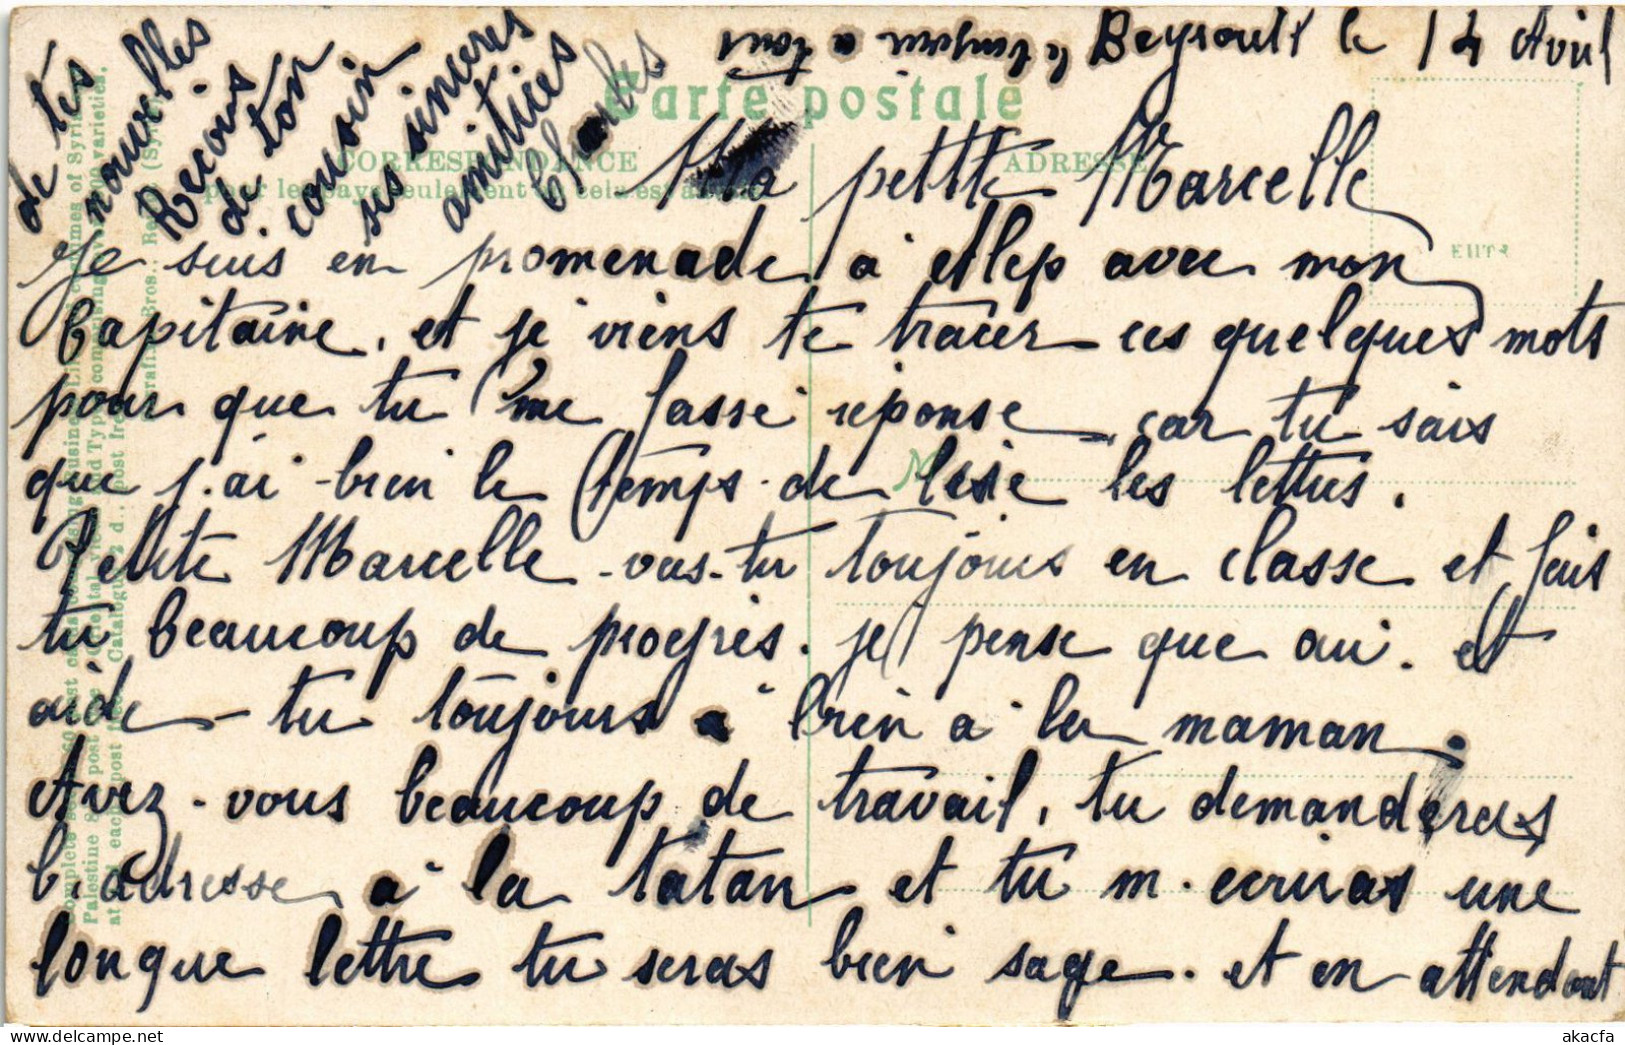 Beyrouth le 14 Avril
Carte postale
CORRESPONDANCE
ADRESSE
Ma petite Marcelle
Je suis en promenade à Alep avec mon
Capitaine, et je viens te tracer ces quelques mots
pour que tu me fasse réponse car tu sais
que j.ai bien le temps de lire les lettres.
Petite Marcelle vas-tu toujours en classe et fais
tu beaucoup de progrès. je pense que oui. et
aide-tu toujours bien à la maman.
Avez-vous beaucoup de travail, tu demanderas
l'adresse à la tatan et tu m.ecriras une
longue lettre tu seras bien sage. et en attendant
de tes
nouvelles
Recois
de ton
cousin
ses sinceres
amitiées
Charles
le bonjour a tous
akacfa